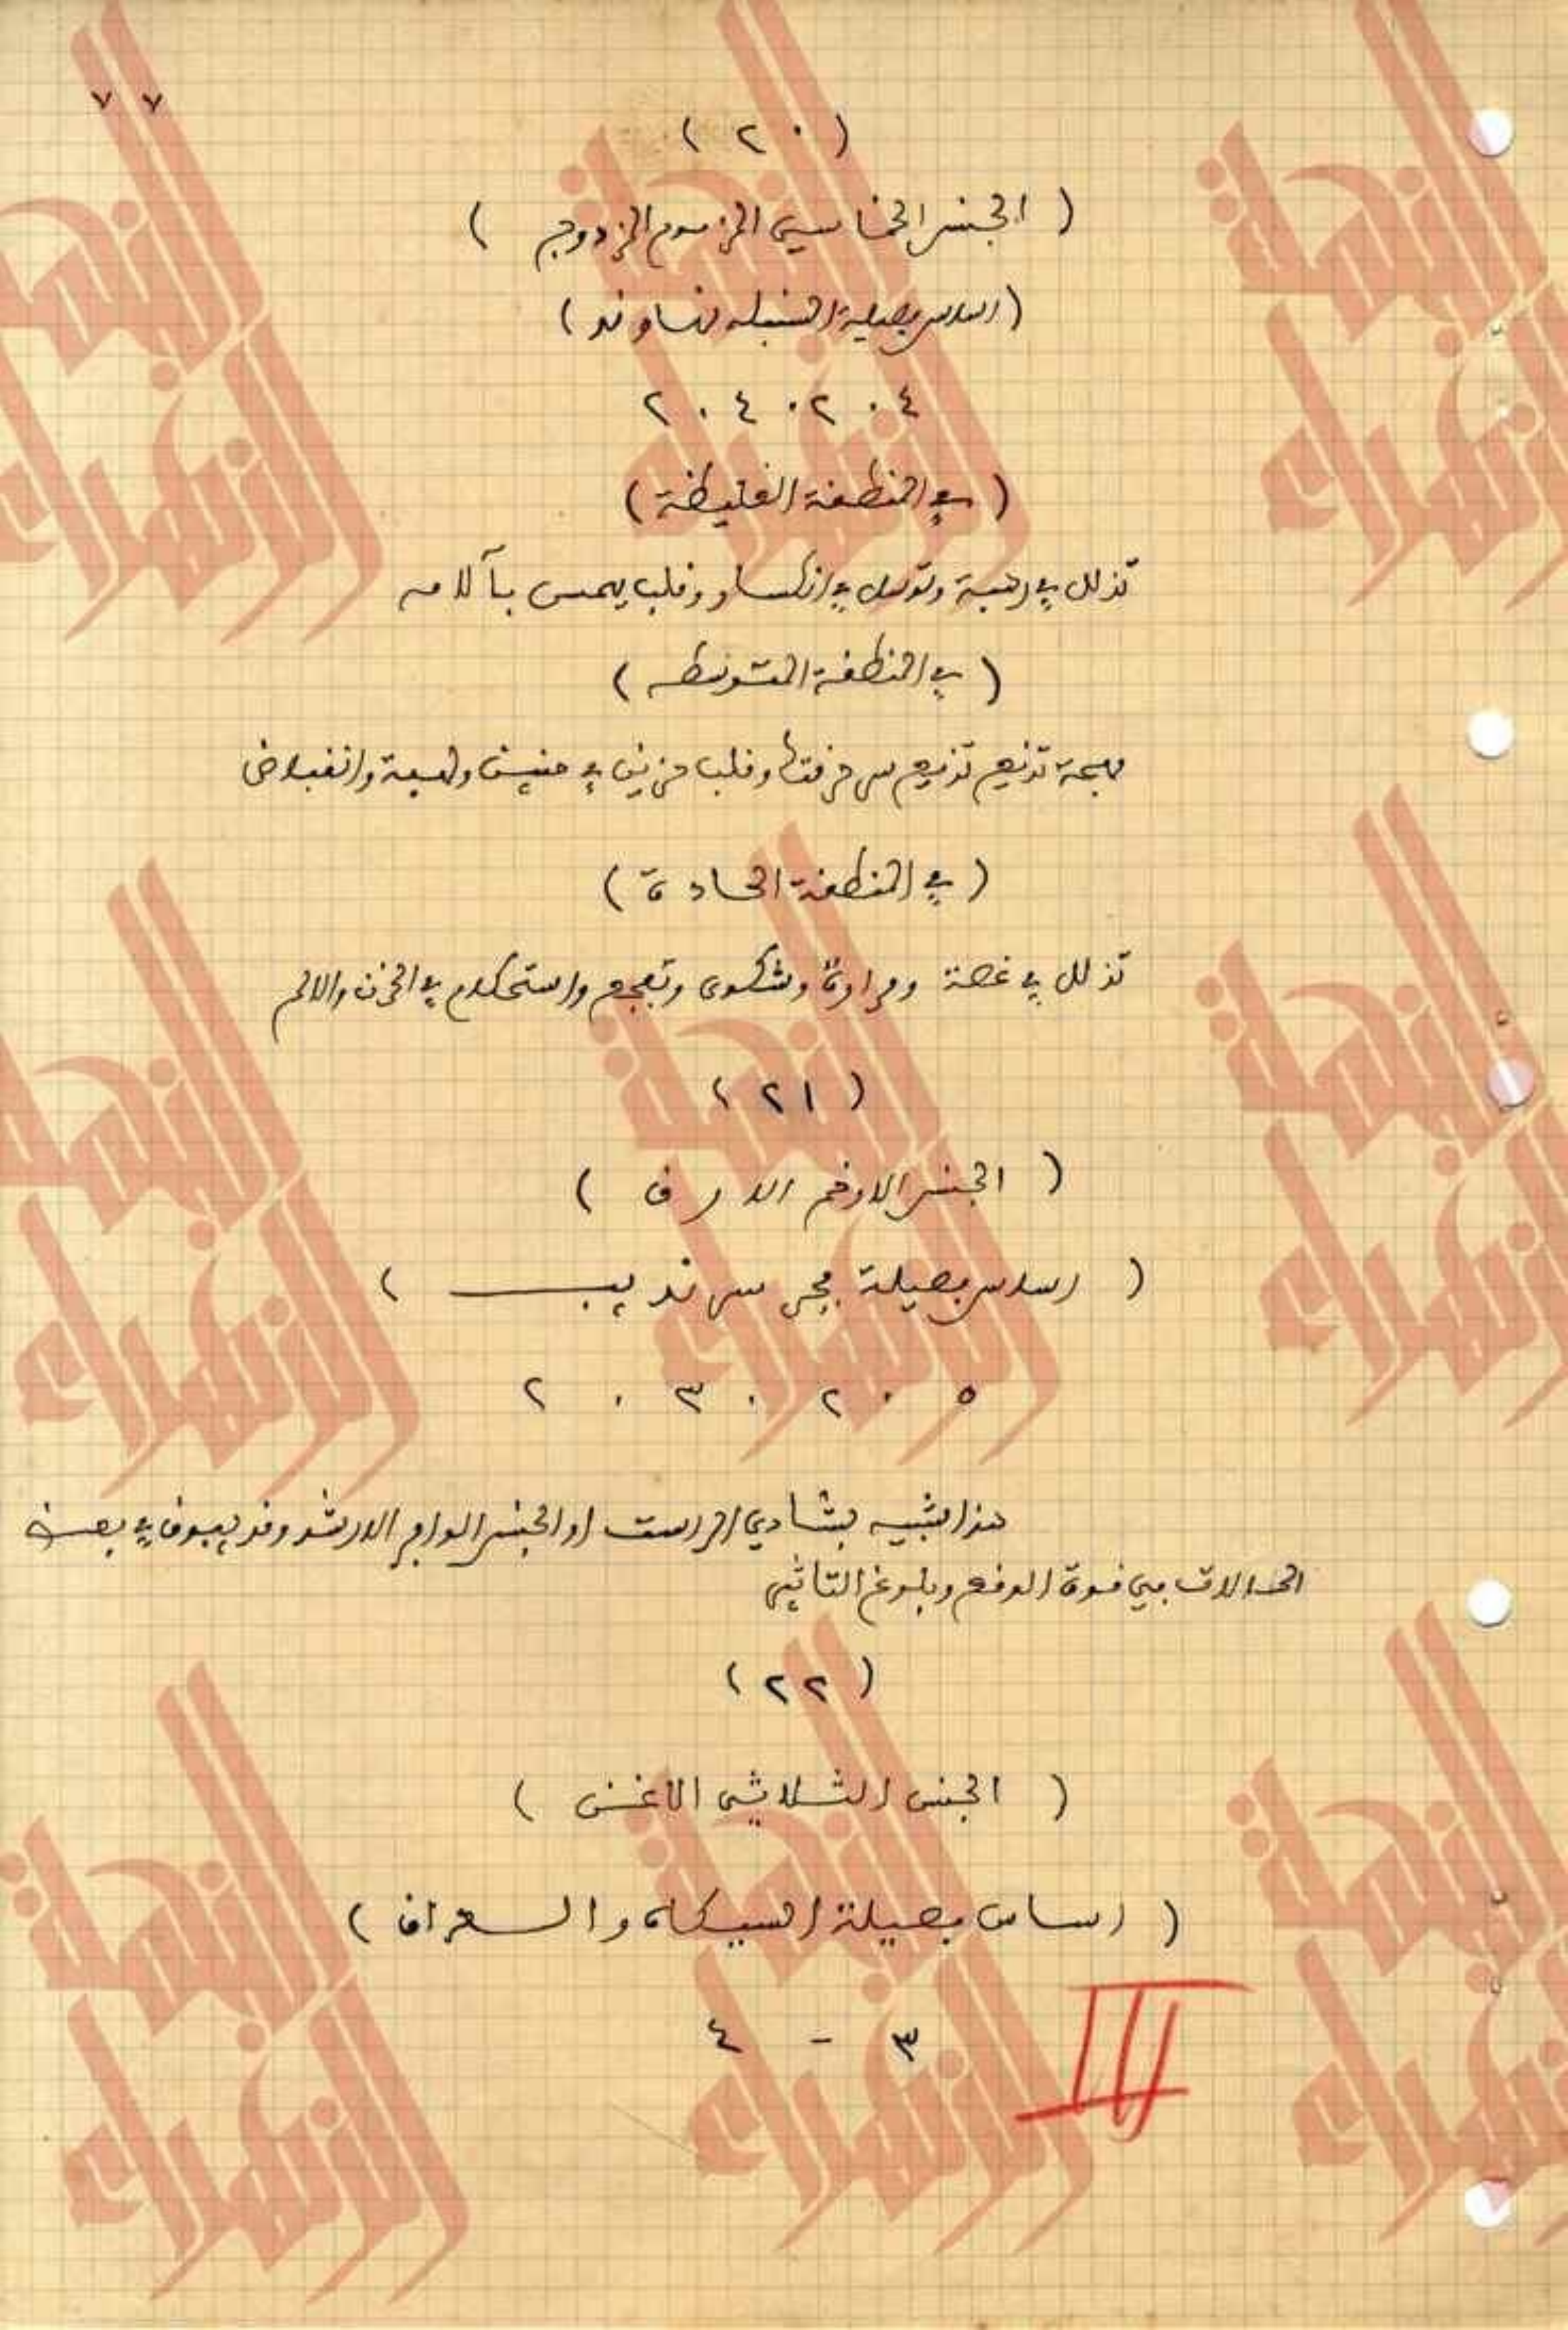 ٧ ٧
( ٢٠ )
( الجنس الخماسي المزموم المزدوج )
( اساس بصيلة السنبله نهاوند )
٤ . ٢ . ٤ . ٢
( في المنطقة الغليظة )
تذلل في رهبة وتوسل في انكسار وقلب يحس بآلامه
( في المنطقة المتوسطه )
مهجة تذيع سر حرقتها وقلب حزين في وانقباض
( في المنطقة الحادة )
تذلل في غصة ومرارة وشكوى وتفجع واستحكام في الحزن والالم
( ٢١ )
( الجنس الاوخم الارق )
( اساس بصيلة سرنديب )
٥ . ٢ . ٣ . ٢
هذا شبيه بشادي الراست او الجنس الارشد وقد يفوقه في بعض
الحالات في قوة الوقع وبلوغ التأثير
( ٢٢ )
( الجنس الثلاثي الاغن )
( اساس بصيلة السيكاه والعراق )
٣ - ٤
III
النهلة
الزهراء